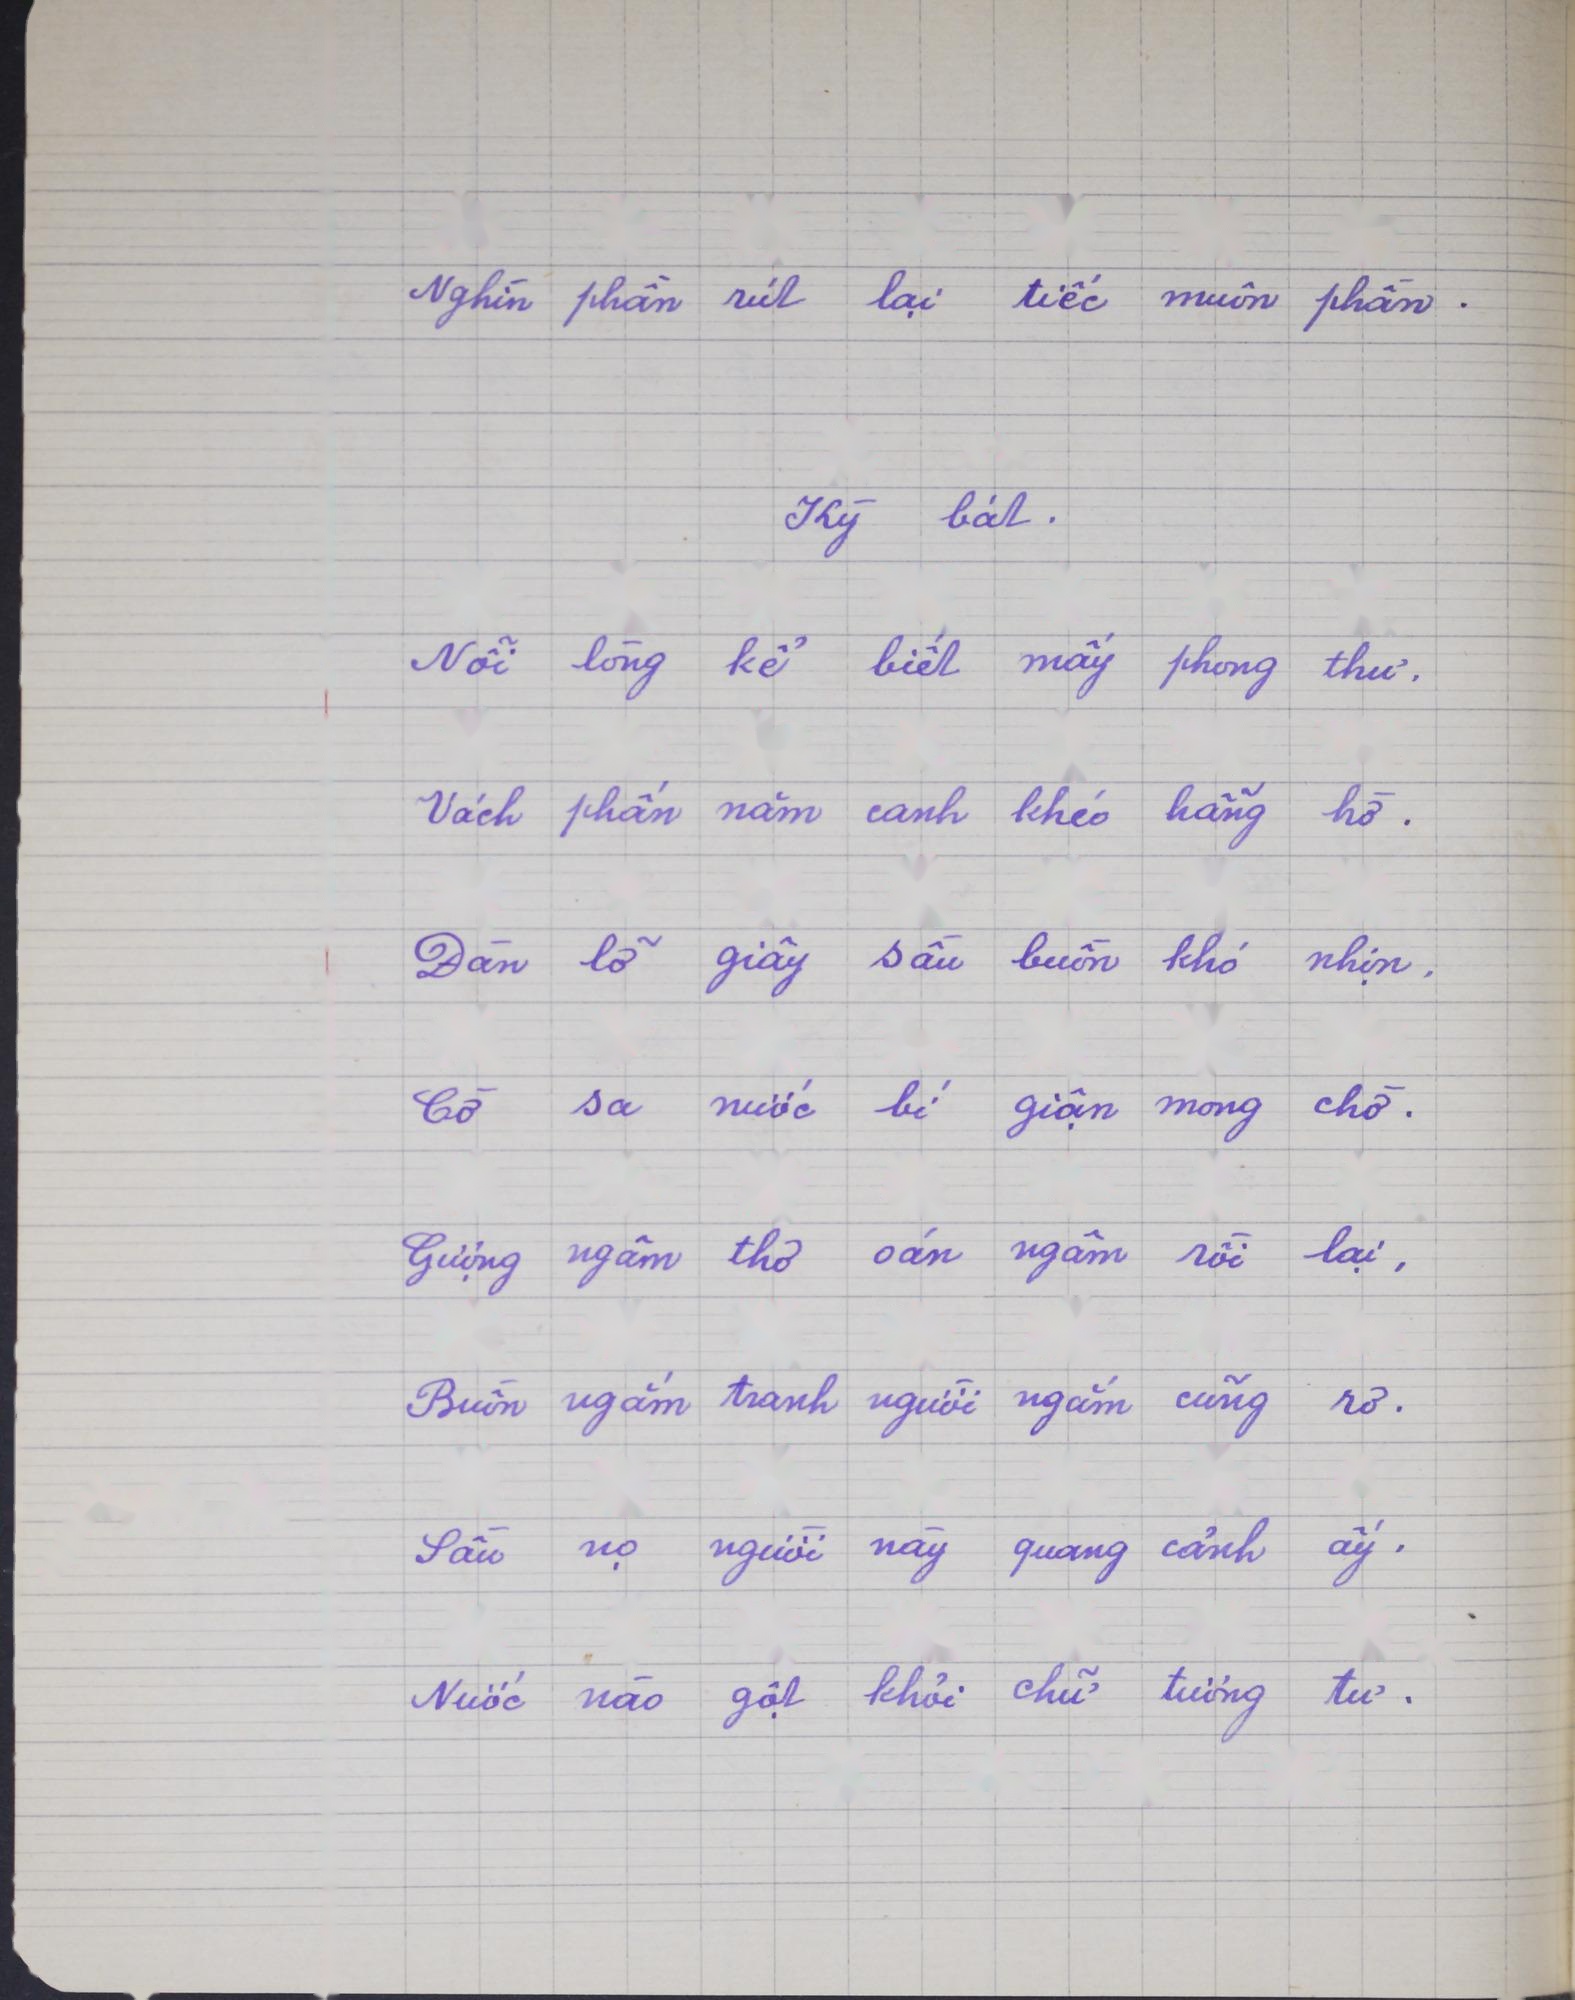 Nghìn phần rút lại tiếc muôn phần.
Kỳ bát.
Nỗi lòng kể biết mấy phong thư.
Vách phấn năm canh khéo hẵng hờ.
Đàn lỡ giây sầu buồn khó nhịn,
Cờ sa nước bí giận mong chờ.
Gượng ngâm thơ oán ngâm rồi lại,
Buồn ngắm tranh người ngắm cũng rơ.
Sầu nọ người này quang cảnh ấy.
Nước nào gột khỏi chữ tương tư.